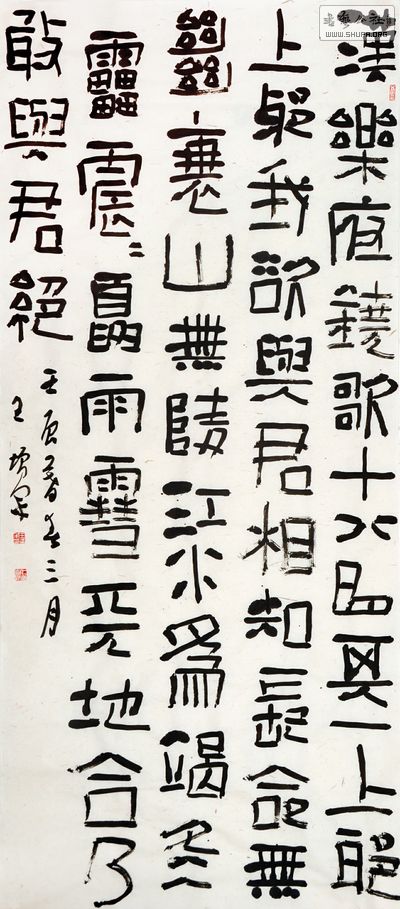 漢樂府鐃歌十八曲其一上邪
上邪我欲與君相知長命無
絕衰山無陵江水為竭冬
雷震〻夏雨雪天地合乃
敢與君絕
壬辰暮春三月
WWW.SHUFA.ORG